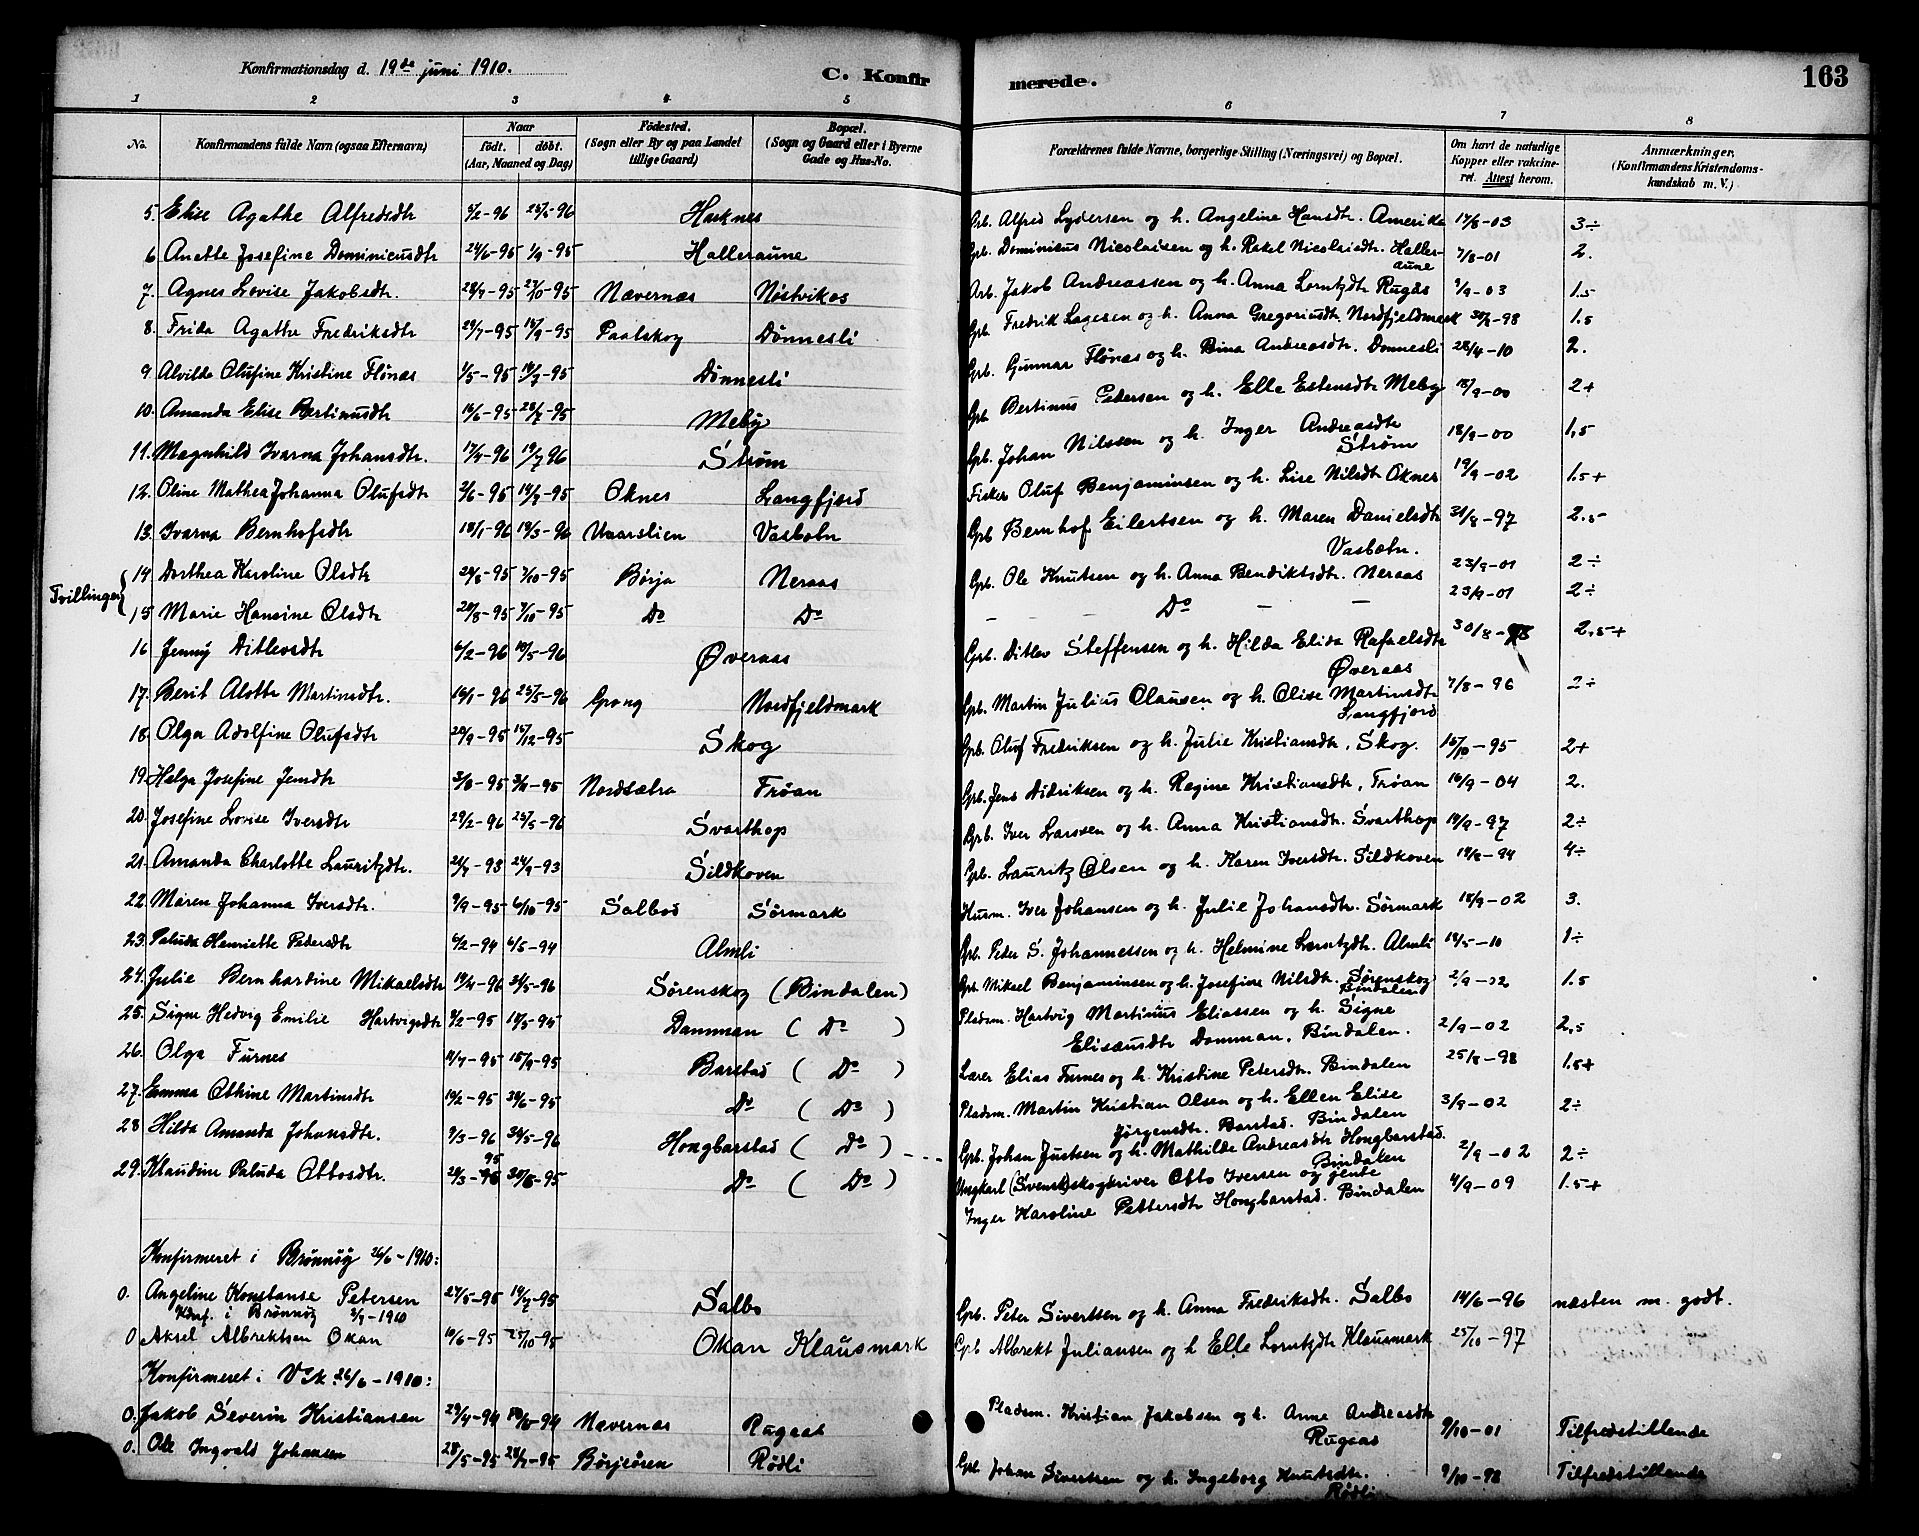 Konfirmationsdag d. 19de juni 1910.
C. Konfirmerede.
163
1 2 3 4 5 6 7 8
No. Konfirmandens fulde Navn (ogsaa Efternavn) Naar født. døbt. (Aar, Maaned og Dag) Fødested. (Sogn eller By og paa Landet tillige Gaard) Bopæl. (Sogn og Gaard eller i Byerne Gade og Hus-No. Forældrenes fulde Navne, borgerlige Stilling (Næringsvei) og Bopæl. Om havt de naturlige Kopper eller vaccineret. Attest herom. Anmærkninger. (Konfirmandens Kristendomskundskab m. V.)
5. Elise Agathe Alfredsdtr Harknes Arb. Alfred Lydersen og h. Angeline Hansdtr. Amerika 17/6-03 3÷
6 Anette Josefine Dominicusdtr 24/6-95 1/9-95 Halleraune Gpb. Dominicus Nicolaisen og h. Rakel Nicolaisdtr. Halleraune 7/8-01 2.
7. Agnes Lovise Jakobsdtr. 27/10-95 Nævernæs Nøstvikas Arb. Jakob Andreassen og h. Anna Lorntzdtr Rugås 9/9-03 1.5
8. Frida Agathe Fredriksdtr 29/7-95 15/9-95 Paalskog Dønnesli Gpb. Fredrik Lagesen og h. Anna Gregoriusdtr Nordfjeldmark 1.5
9 Alvilde Olufine Kristine Flønæs 1/5-95 14/7-95 Dønnesli Gpb. Gunnar Flønæs og h. Bina Andreasdtr. Dønnesli 28/4-10 2.
10. Amanda Elise Bertinusdtr 16/6-95 28/7-95 Meby Gpb. Bertinus Pedersen og h. Elle Estensdtr Meby 18/9-00 2+
11. Magnhild Ivarna Johansdtr. 19/7 96 Strøm Gpb. Johan Nilssen og h. Inger Andreasdtr Strøm 18/9-00 1,5
12. Oline Mathea Johanna Olufsdtr 2/6-95 14/7-95 Oknes Langfjord Fisker Oluf Benjaminsen og h. Lise Nilsdtr Oknes 19/9-02 1.5+
13. Ivarna Bernhofsdtr 18/1-96 15/3-96 Vaarslien Vasbotn Gpb Bernhof Eilertsen og h. Maren Danielsdtr Vasbotn. 31/8-97 2.5
Tvillinger
14 Dorthea Karoline Olsdtr 20/8-95 7/10-95 Børja Neraas Gpb. Ole Knutsen og h. Anna Bendiktsdtr. Neraas 23/9-01 2÷
15 Marie Hansine Olsdtr 20/8-95 7/10-95 Do Do - Do - - 23/9-01 2÷
16 Jenny Ditlevsdtr 6/2-96 10/5-96 Øveraas Gpb. Ditlev Steffensen og h. Hilda Elida Rafaelsdtr Øveraas 30/8-98 2,5+
17. Berit Alette Martinsdtr. 16/1-96 25/5-96 Grong Nordfjeldmark Gpb. Martin Julius Clausen og h. Elise Martinsdtr Langfjord 7/8-96 2÷
18. Olga Adolfine Olufsdtr 20/9-95 15/12-95 Skog Gpb. Oluf Fredriksen og h. Julie Kristiansdtr, Skog. 15/10-95 2+
19. Helga Josefine Jensdtr 3/8-95 3/11-95 Nordsætra Frøan Gpb. Jens Didriksen og h. Regine Kristiansdtr, Frøan 16/9-04 2.
20. Josefine Lovise Iversdtr 29/2-96 25/5-96 Svarthop Gpb. Iver Larssen og h. Anna Kristiansdtr. Svarthop 14/9-97 2÷
21. Amanda Charlotte Lauritzdtr. 24/9-93 Sildkoven Gpb. Lauritz Olsen og h. Karen Iversdtr. Sildkoven 14/8-94 4÷
22. Maren Johanna Iversdtr. 9/9-95 6/10-95 Salbod Sørmark Husm. Iver Johansen og h. Julie Johansdtr. Sørmark 18/9-02 3.
23. Paluda Henriette Pedersdtr 6/2-94 6/5-94 Almli Gpb. Peder S. Johannessen og h. Helmine Lorntzdtr. Almli 18/5-10 1÷
24. Julie Bernhardine Mikaelsdtr 19/4-96 24/5-96 Sørenskog (Bindalen) Gpb. Mikael Benjaminsen og h. Josefine Nilsdtr. Sørenskog Bindalen 2/9-02 1.5
25. Signe Hedvig Emilie Hartvigsdtr 9/2-95 Damman (Do) Pladsm. Hartvig Martinus Eliassen og h. Signe Elisæusdtr Damman, Bindalen. 2/9-02 2,5
26. Olga Furnes 11/7-95 15/9-95 Barstad (Do) Lærer Elias Furnes og h. Kristine Petersdtr. Bindalen 25/8-98 1.5+
27. Emma Othine Martinsdtr 19/2-95 Do (Do) Pladsm. Martin Kristian Olsen og h. Ellen Elise Jørgensdtr. Barstad. Bindalen 3/9-02 2÷
28 Hilda Amanda Johansdtr. 9/3-96 Hongbarstad (Do) --- Gpb. Johan Justsen og h. Mathilde Andreasdtr Hongbarstad. Bindalen 2/9-02 2÷
29. Klaudine Paluda Ottosdtr. 95 Do (Do) Ungkarl (Svensk) skogskriver Otto Iversen og jente Inger Karoline Pettersdtr Hongbarstad. Bindalen 4/9-09 1.5+
Konfirmeret i Brønnøy 26/6-1910:
0. Angeline Konstanse Petersen 27/5-95 14/7-95 Salbo Gpb. Peter Sivertsen og h. Anna Fredriksdtr. Salbo 14/6-96 næsten m. godt.
Konf. i Brønnøy 2/7-1910
0 Aksel Albrektsen Okan 10/6-95 25/10-95 Okan Klausmark Gpb Albrekt Juliansen og h Elle Lorntzdtr Klausmark 25/10-97
Konfirmeret i Vik 26/6-1910:
0. Jakob Severin Kristiansen 29/4-94 Nævernæs Rugaas Pladsm. Kristian Jakobsen og h. Anne Andreasdtr Rugaas 9/10-01 Tilfredstillende
0. Ole Ingvald Johansen 28/5-95 28/7-95 Børjeøren Rødli Gpb. Johan Sivertsen og h. Ingeborg Knutsdtr. Rødli 9/10-98 Tilfredstillende